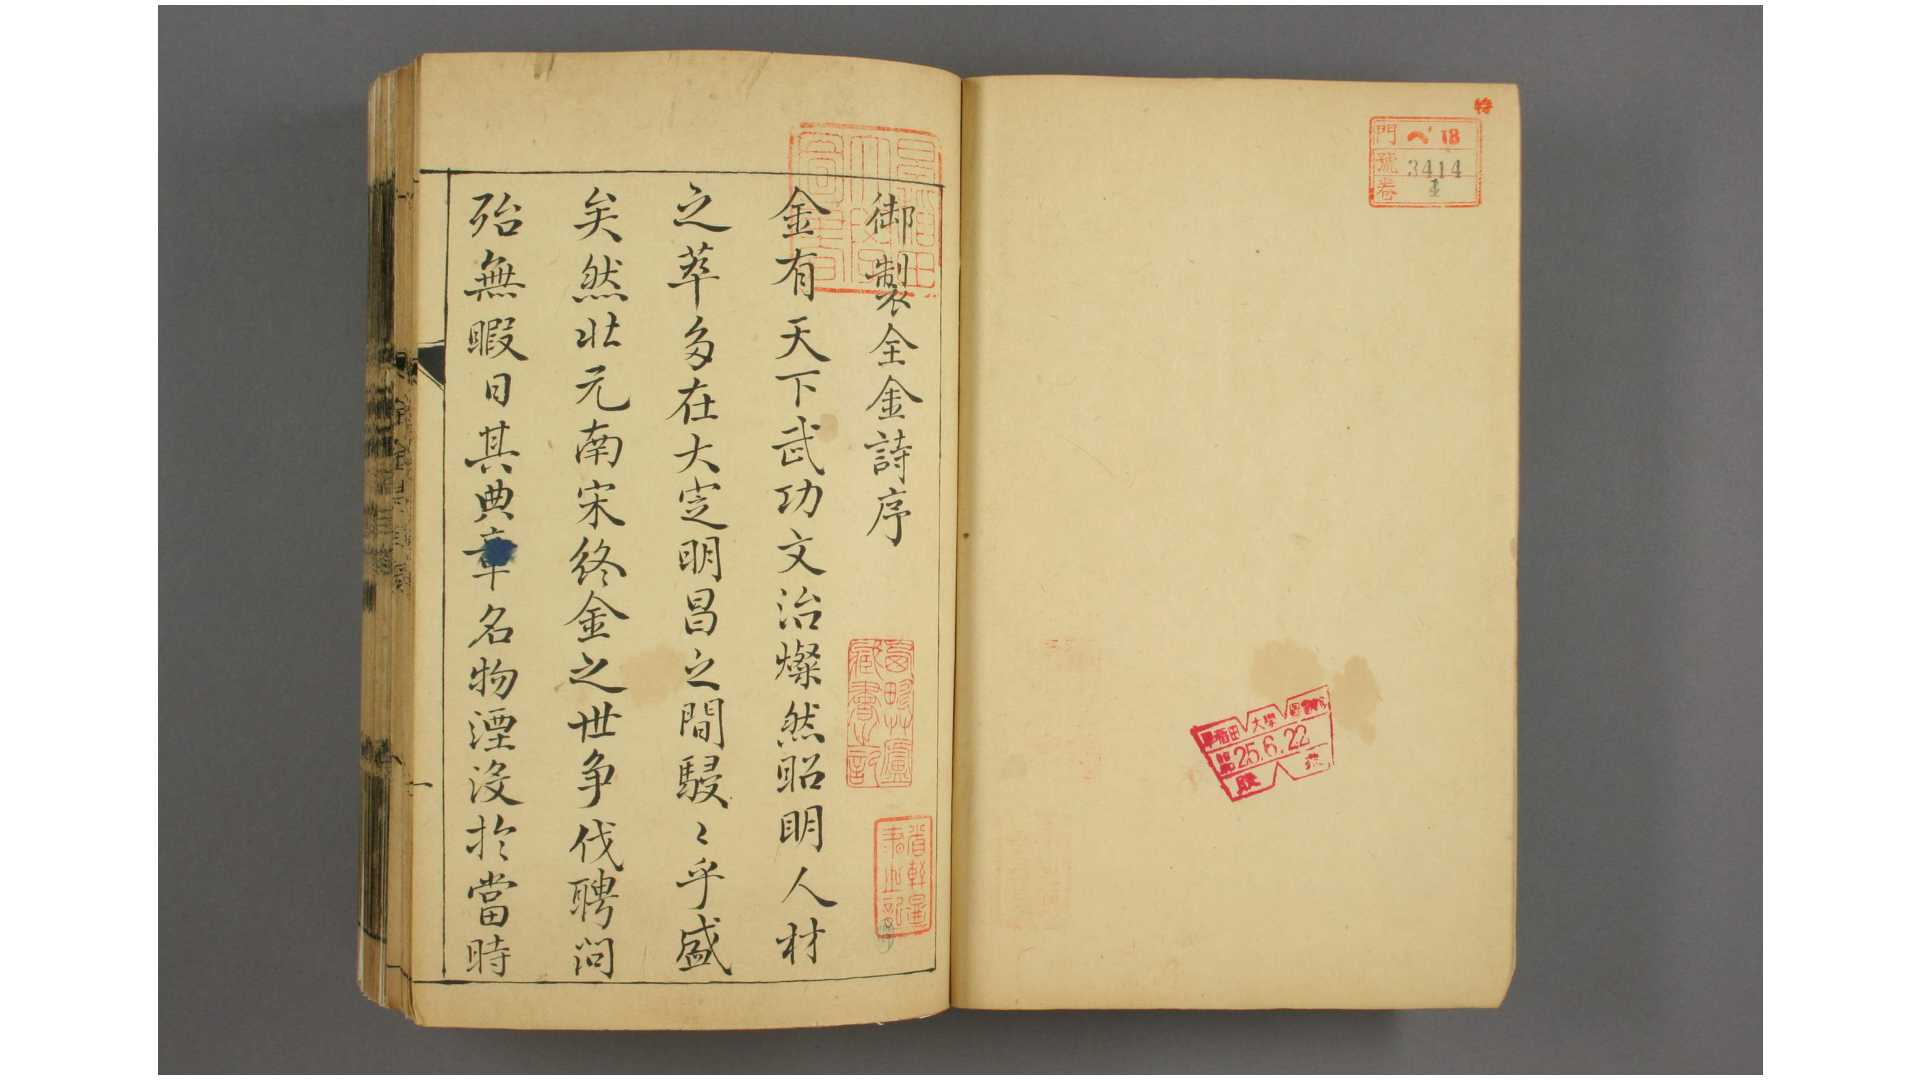 特
門 ヘ 18
號 3414
卷 1
早稻田大學圖書館
昭25.6.22
御製全金詩序
金有天下武功文治燦然昭明人材
之萃多在大定明昌之間駸〻乎盛
矣然北元南宋終金之世争伐聘問
殆無暇日其典章名物湮没於當時